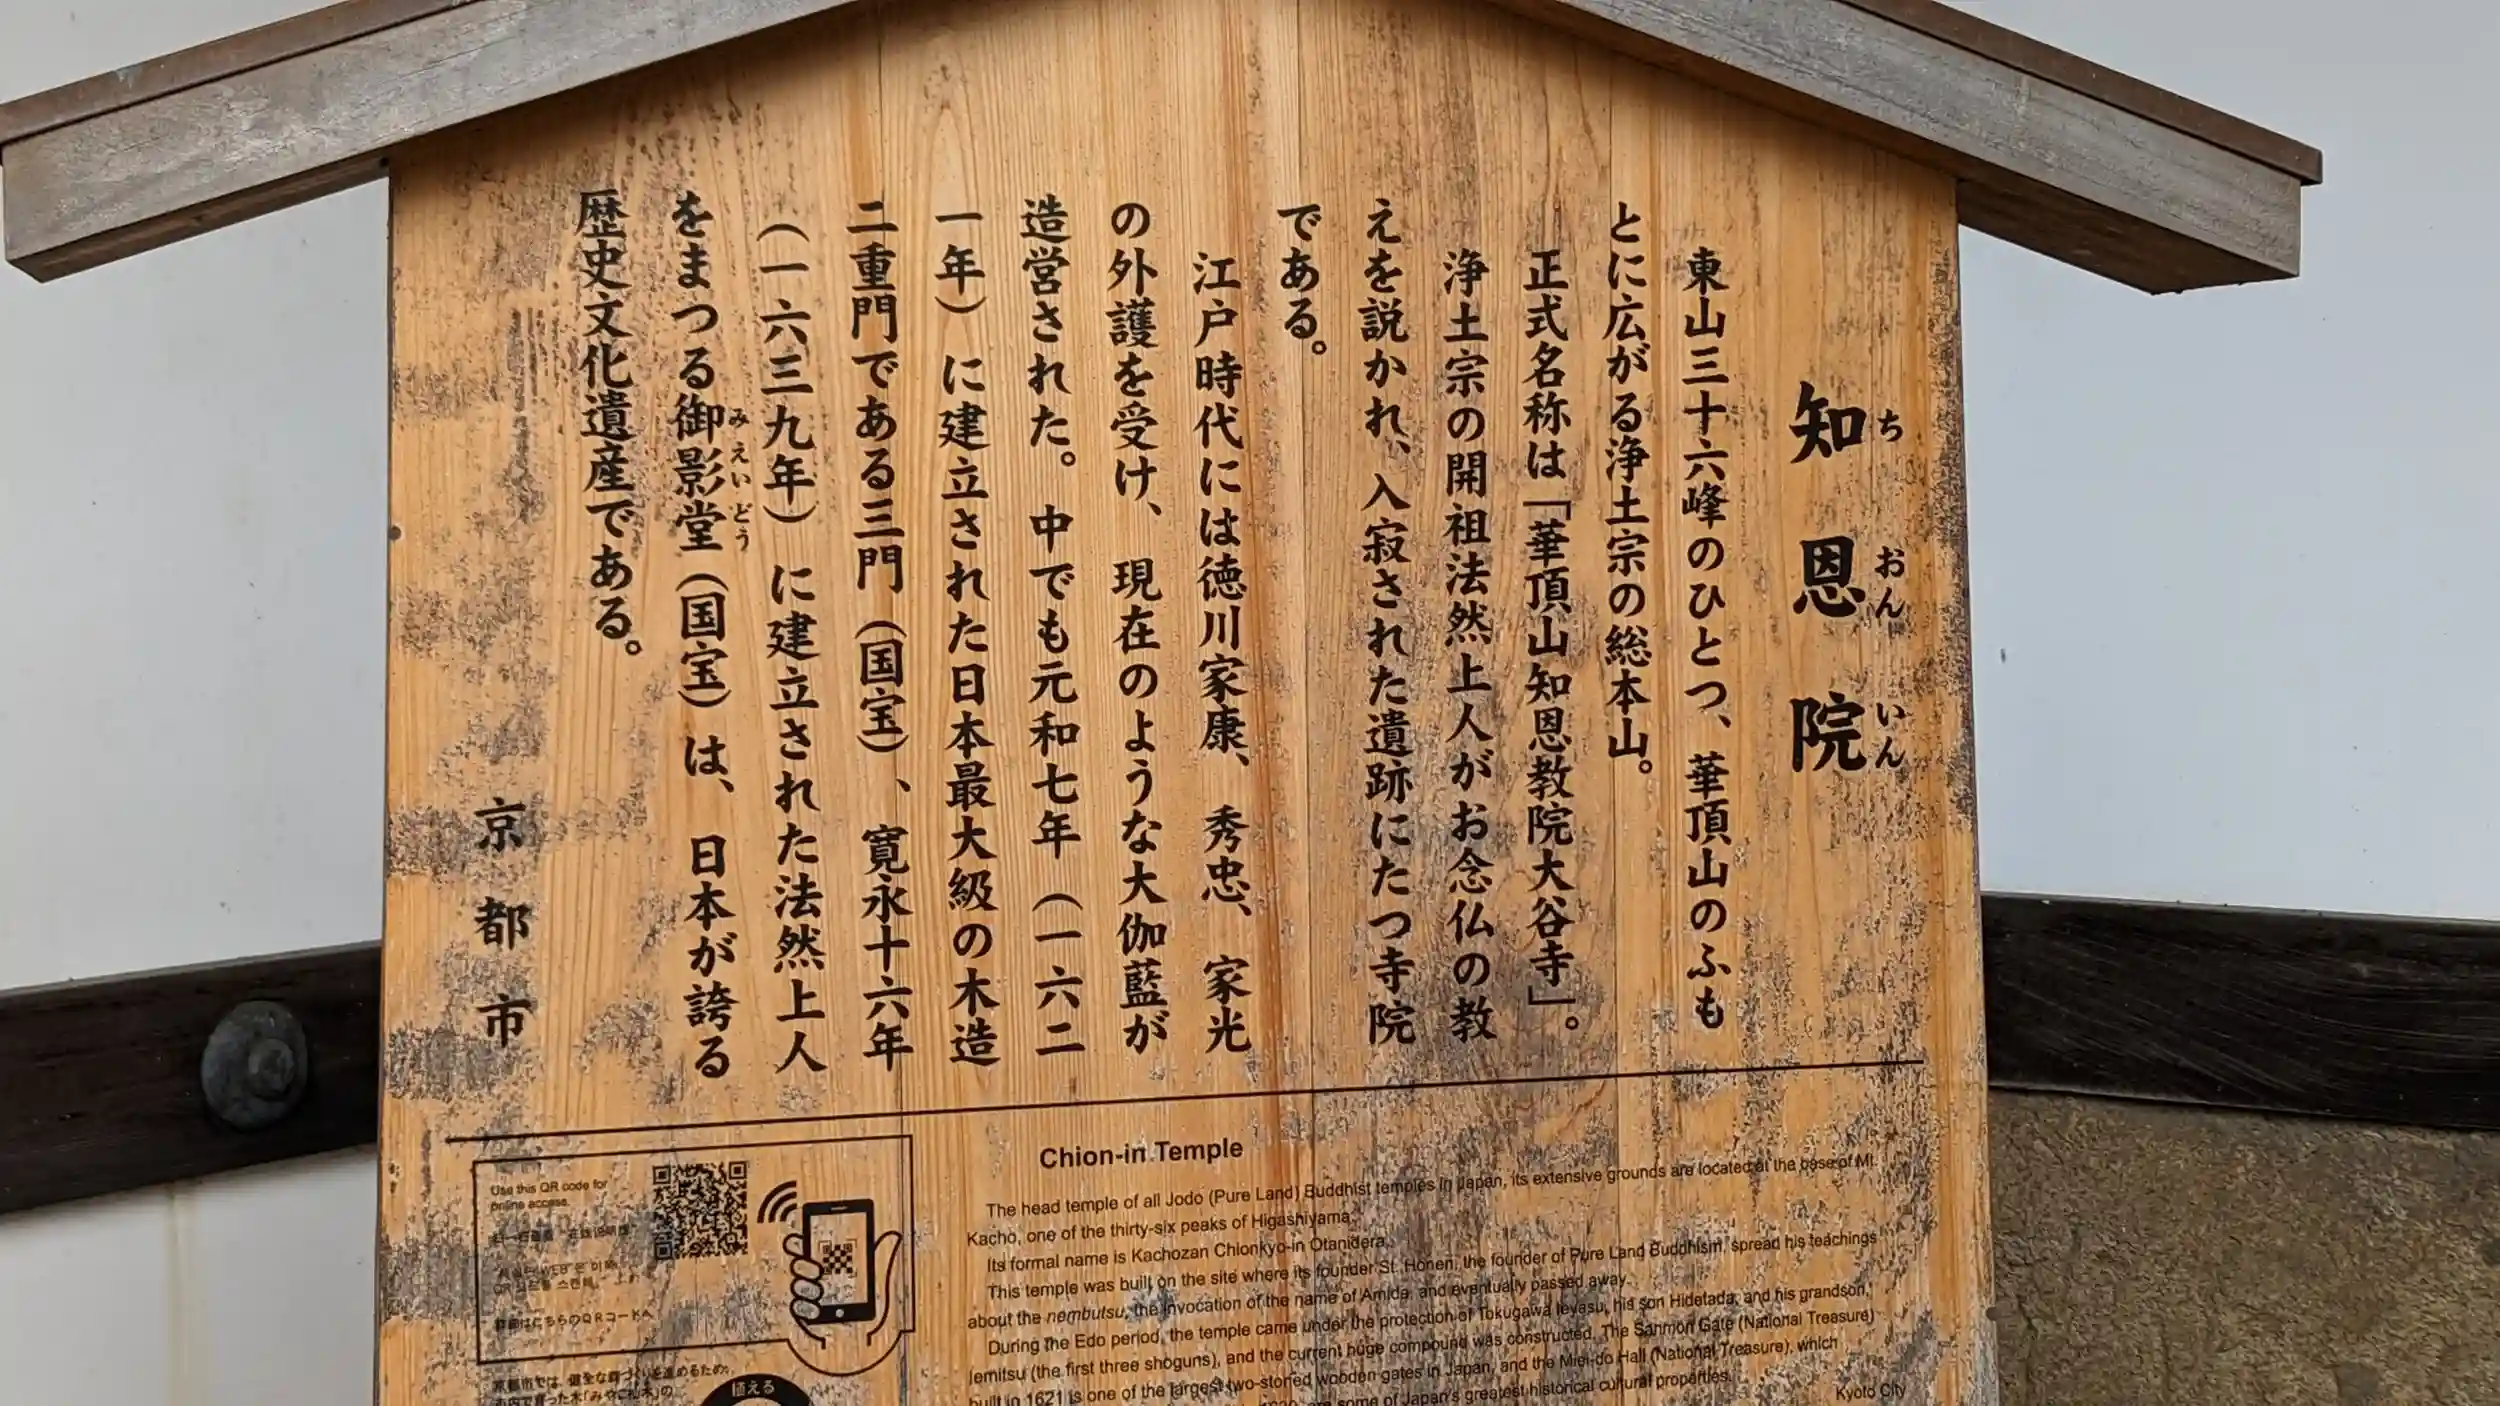 知恩院
ちおんいん
東山三十六峰のひとつ、華頂山のふも
とに広がる浄土宗の総本山。
正式名称は「華頂山知恩教院大谷寺」。
浄土宗の開祖法然上人がお念仏の教
えを説かれ、入寂された遺跡にたつ寺院
である。
江戸時代には徳川家康、秀忠、家光
の外護を受け、現在のような大伽藍が
造営された。中でも元和七年（一六二
一年）に建立された日本最大級の木造
二重門である三門（国宝）、寛永十六年
（一六三九年）に建立された法然上人
をまつる御影堂（国宝）は、日本が誇る
みえいどう
歴史文化遺産である。
京都市
Chion-in Temple
The head temple of all Jodo (Pure Land) Buddhist temples in Japan, its extensive grounds are located at the base of Mt.
Kacho, one of the thirty-six peaks of Higashiyama.
Its formal name is Kachozan Chionkyo-in Otanidera.
This temple was built on the site where its founder St. Honen, the founder of Pure Land Buddhism, spread his teachings
about the nembutsu, the invocation of the name of Amida, and eventually passed away.
During the Edo period, the temple came under the protection of Tokugawa Ieyasu, his son Hidetada, and his grandson,
Iemitsu (the first three shoguns), and the current huge compound was constructed. The Sanmon Gate (National Treasure)
built in 1621 is one of the largest two-storied wooden gates in Japan, and the Miei-do Hall (National Treasure), which
some of Japan's greatest historical cultural properties.
Kyoto City
Use this QR code for
online access.
詳細はこちらのQRコードへ
京都市では、健全な森づくりを進めるため、
市内で育った木「みやこ杣木」の
植える